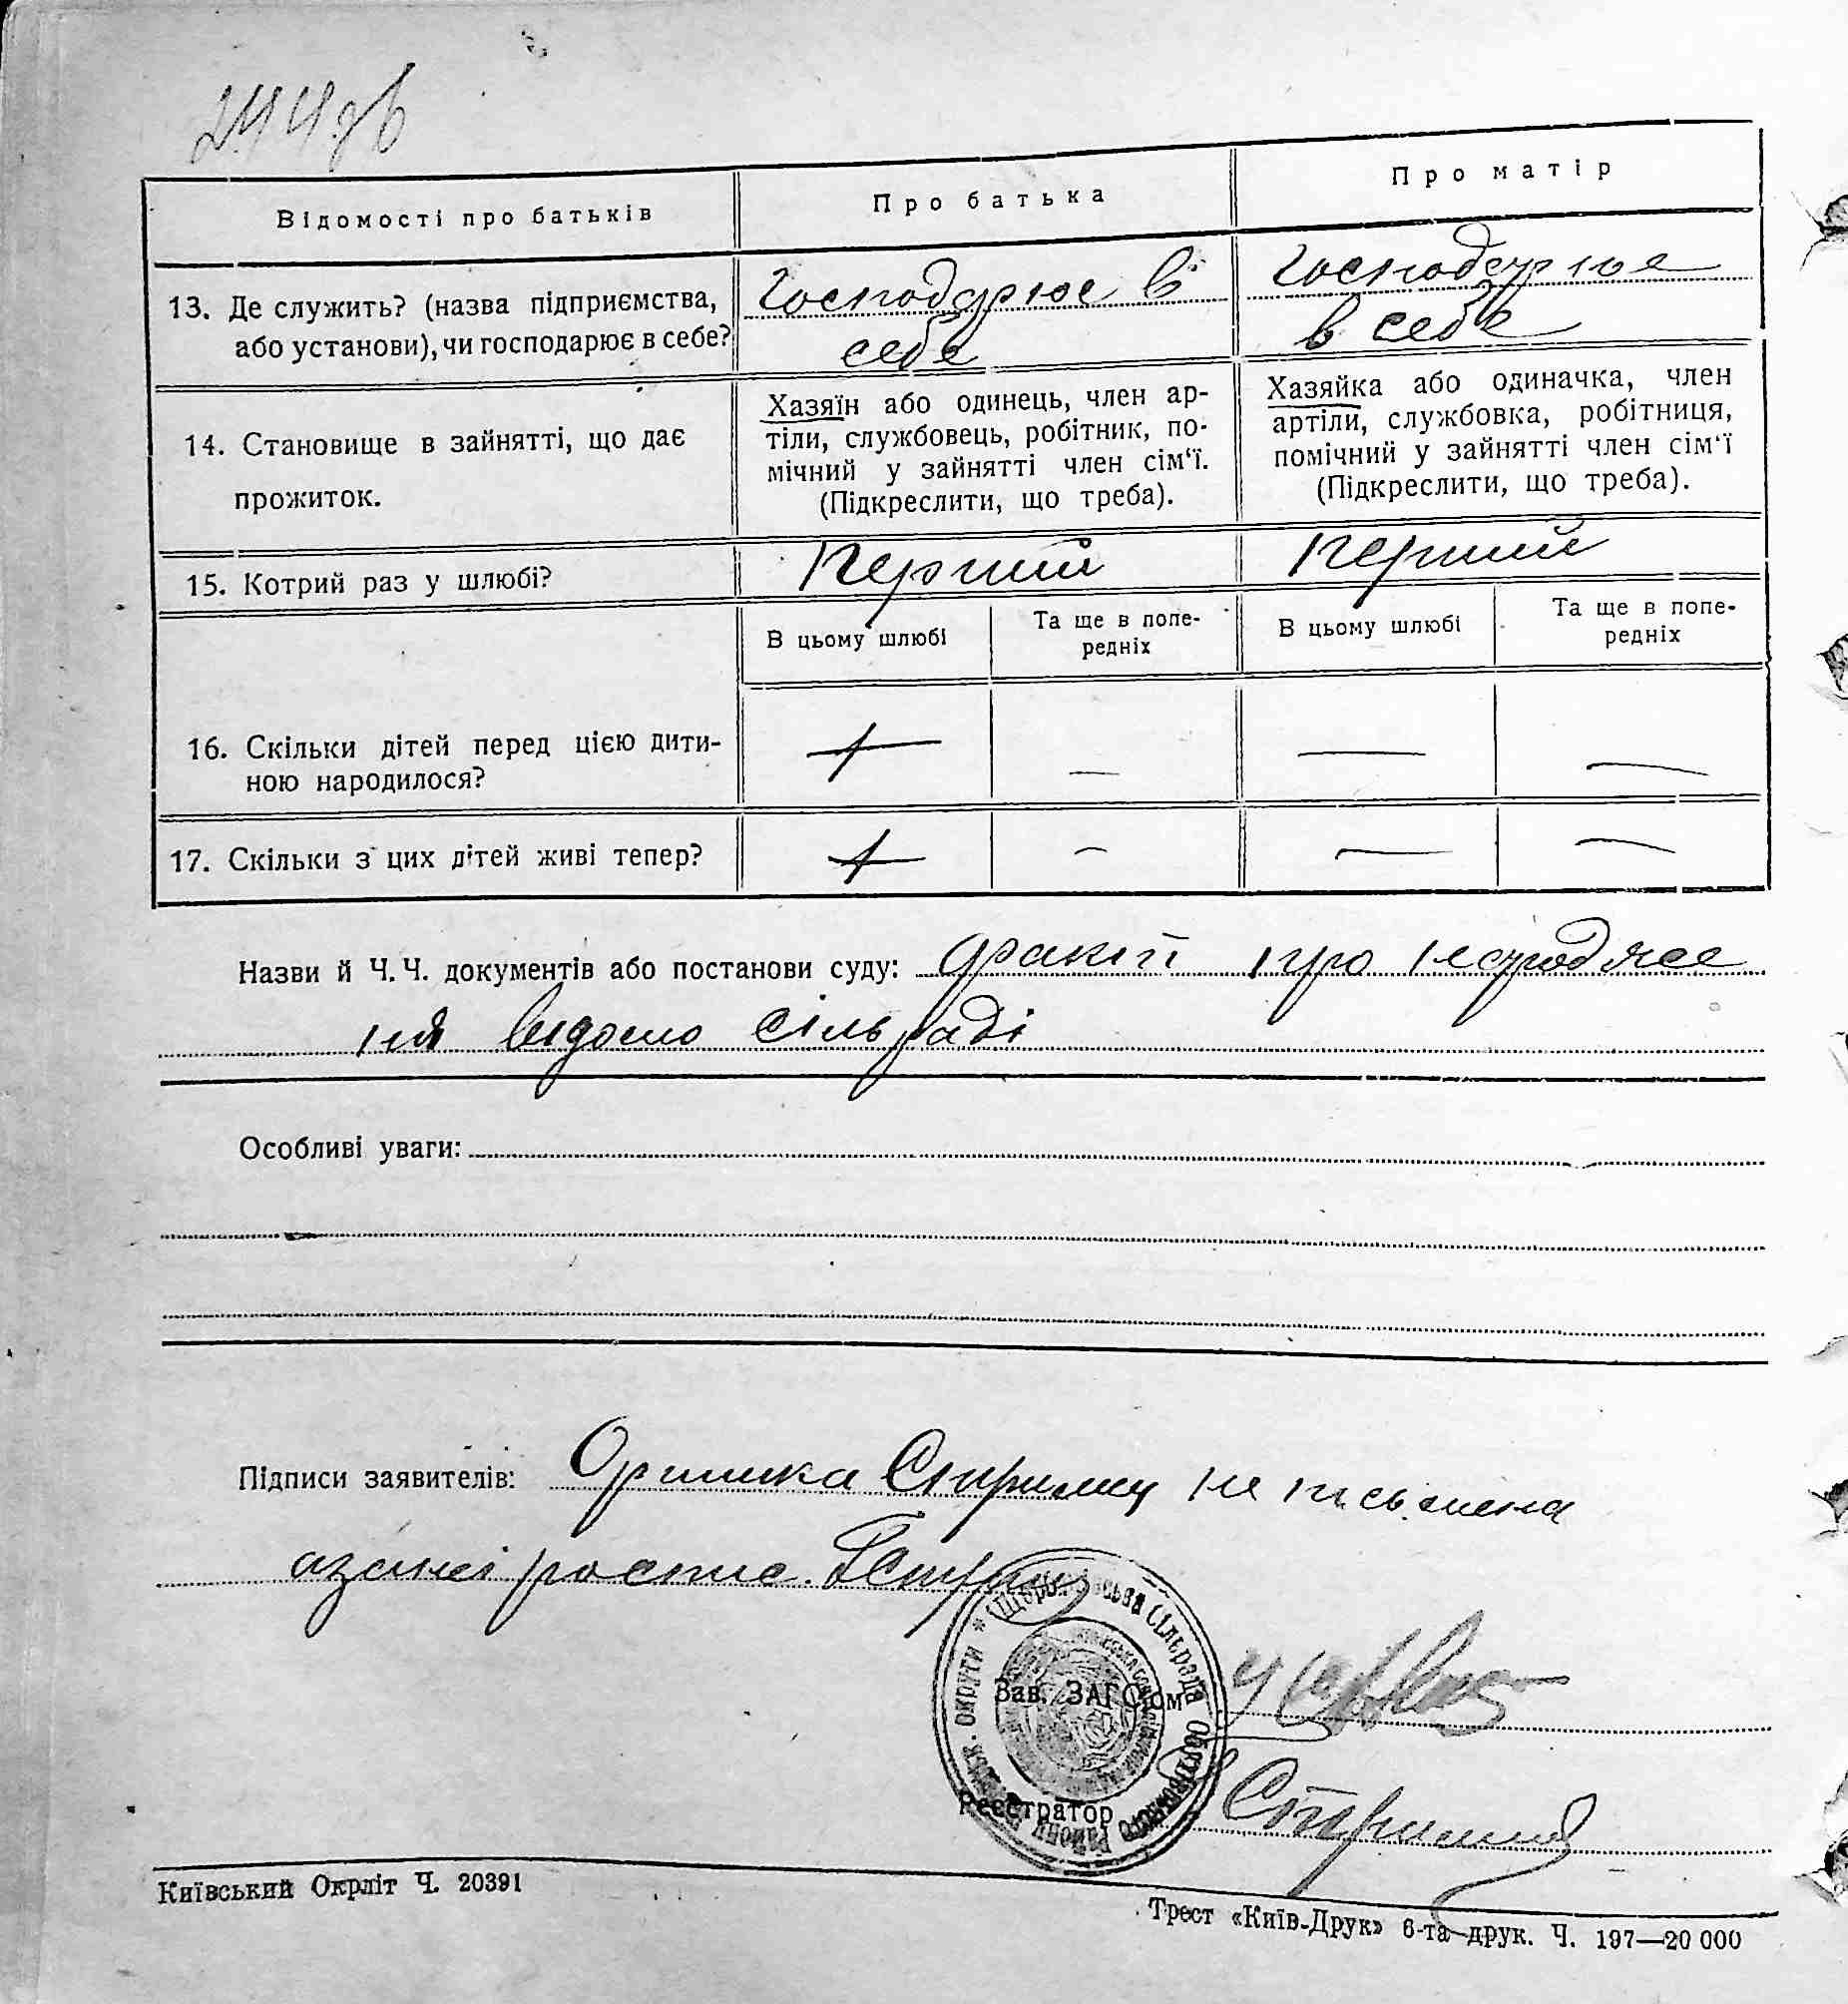 244 зв
Відомості про батьків
Про батька
Про матір
13. Де служить? (назва підприємства, або установи), чи господарює в себе?
Господарює в
себе
Господарює
в себе
14. Становище в зайнятті, що дає
прожиток.
Хазяїн або одинець, член ар-
тіли, службовець, робітник, по-
мічний у зайнятті член сім‘ї.
(Підкреслити, що треба).
Хазяйка або одиначка, член
артіли, службовка, робітниця,
помічний у зайнятті член сім‘ї
(Підкреслити, що треба).
15. Котрий раз у шлюбі?
Перший
Перший
В цьому шлюбі
Та ще в попе-
редніх
В цьому шлюбі
Та ще в попе-
редніх
16. Скільки дітей перед цією дити-
ною народилося?
— — —
17. Скільки з цих дітей живі тепер?
— — —
Назви й Ч. Ч. документів або постанови суду: факт про народжен
ня відомо сільраді
Особливі уваги:
Підписи заявителів: Оришка не письмена
за неї роспис.
сільрада
округи
району
Зав. ЗАГС‘ом
Реєстратор
Київський Окрліт Ч. 20391
Трест «Київ-Друк» 6-та друк. Ч. 197—20 000